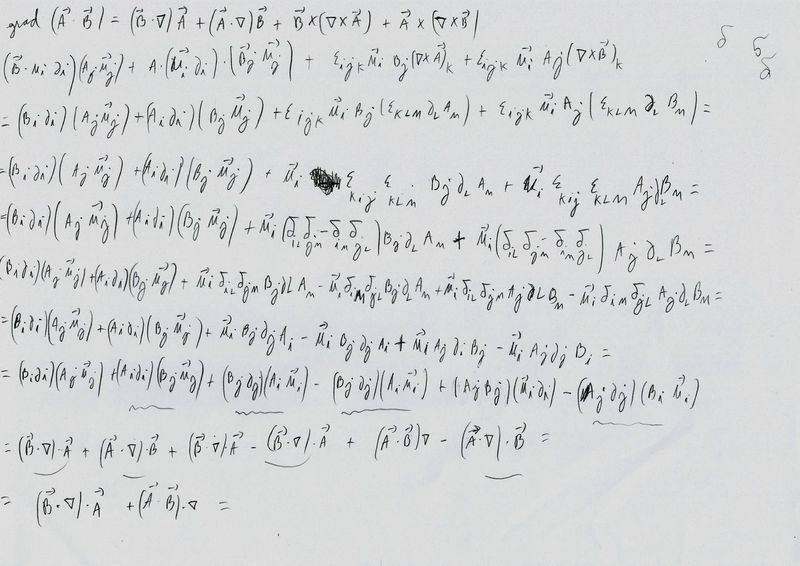 grad (A⃗·B⃗) = (B⃗·∇)A⃗ + (A⃗·∇)B⃗ + B⃗×(∇×A⃗) + A⃗×(∇×B⃗)
(B⃗·μi ∂i)(Aj μ⃗j) + A·(μ⃗i ∂i)·(B⃗j μ⃗j) + εijk μ⃗i Bj(∇×A⃗)k + εijk μ⃗i Aj(∇×B⃗)k
= (Bi∂i)(Aj μ⃗j) + (Ai∂i)(Bj μ⃗j) + εijk μ⃗i Bj(εkLm ∂L Am) + εijk μ⃗i Aj(εkLm ∂L Bm) =
= (Bi∂i)(Aj μ⃗j) + (Ai∂i)(Bj μ⃗j) + μ⃗i εkij εkLm Bj∂L Am + μ⃗i εkij εkLm Aj∂L Bm =
= (Bi∂i)(Aj μ⃗j) + (Ai∂i)(Bj μ⃗j) + μ⃗i(δiL δjm − δim δjL) Bj∂L Am + μ⃗i(δiL δjm − δim δjL) Aj∂L Bm =
(Bi∂i)(Aj μ⃗j) + (Ai∂i)(Bj μ⃗j) + μ⃗i δiL δjm Bj∂L Am − μ⃗i δim δjL Bj∂L Am + μ⃗i δiL δjm Aj ∂L Bm − μ⃗i δim δjL Aj∂L Bm =
= (Bi∂i)(Aj μ⃗j) + (Ai∂i)(Bj μ⃗j) + μ⃗i Bj∂j Ai − μ⃗i Bj∂j Ai + μ⃗i Aj∂i Bj − μ⃗i Aj∂j Bi =
= (Bi∂i)(Aj μ⃗j) + (Ai∂i)(Bj μ⃗j) + (Bj∂j)(Ai μ⃗i) − (Bj∂j)(Ai μ⃗i) + (Aj Bj)(μ⃗i∂i) − (Aj∂j)(Bi μ⃗i)
= (B⃗·∇)·A⃗ + (A⃗·∇)·B⃗ + (B⃗·∇)A⃗ − (B⃗·∇)·A⃗ + (A⃗·B⃗)∇ − (A⃗·∇)·B⃗ =
= (B⃗·∇)·A⃗ + (A⃗·B⃗)·∇ =